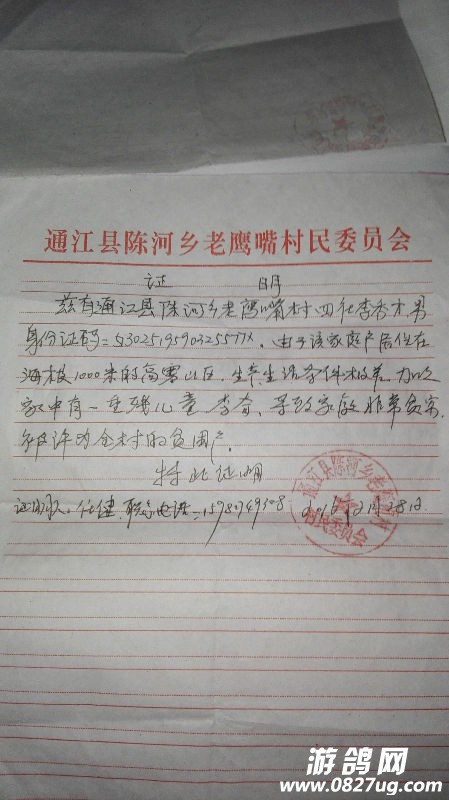 通江县陈河乡老鹰嘴村民委员会
证 明
兹有通江县陈河乡老鹰嘴村四社李香才男
身份证码=
由于该家庭户居住在
海拔1000米的高寒山区，生产生活条件极差，加以
家中有一重残儿童李奋，导致家庭非常贫穷，
为全村的贫困户。
特此证明
证明人：任健，联系电话：
2月28日
通江县陈河乡老鹰嘴村
村民委员会
游鸽网
www.0827ug.com